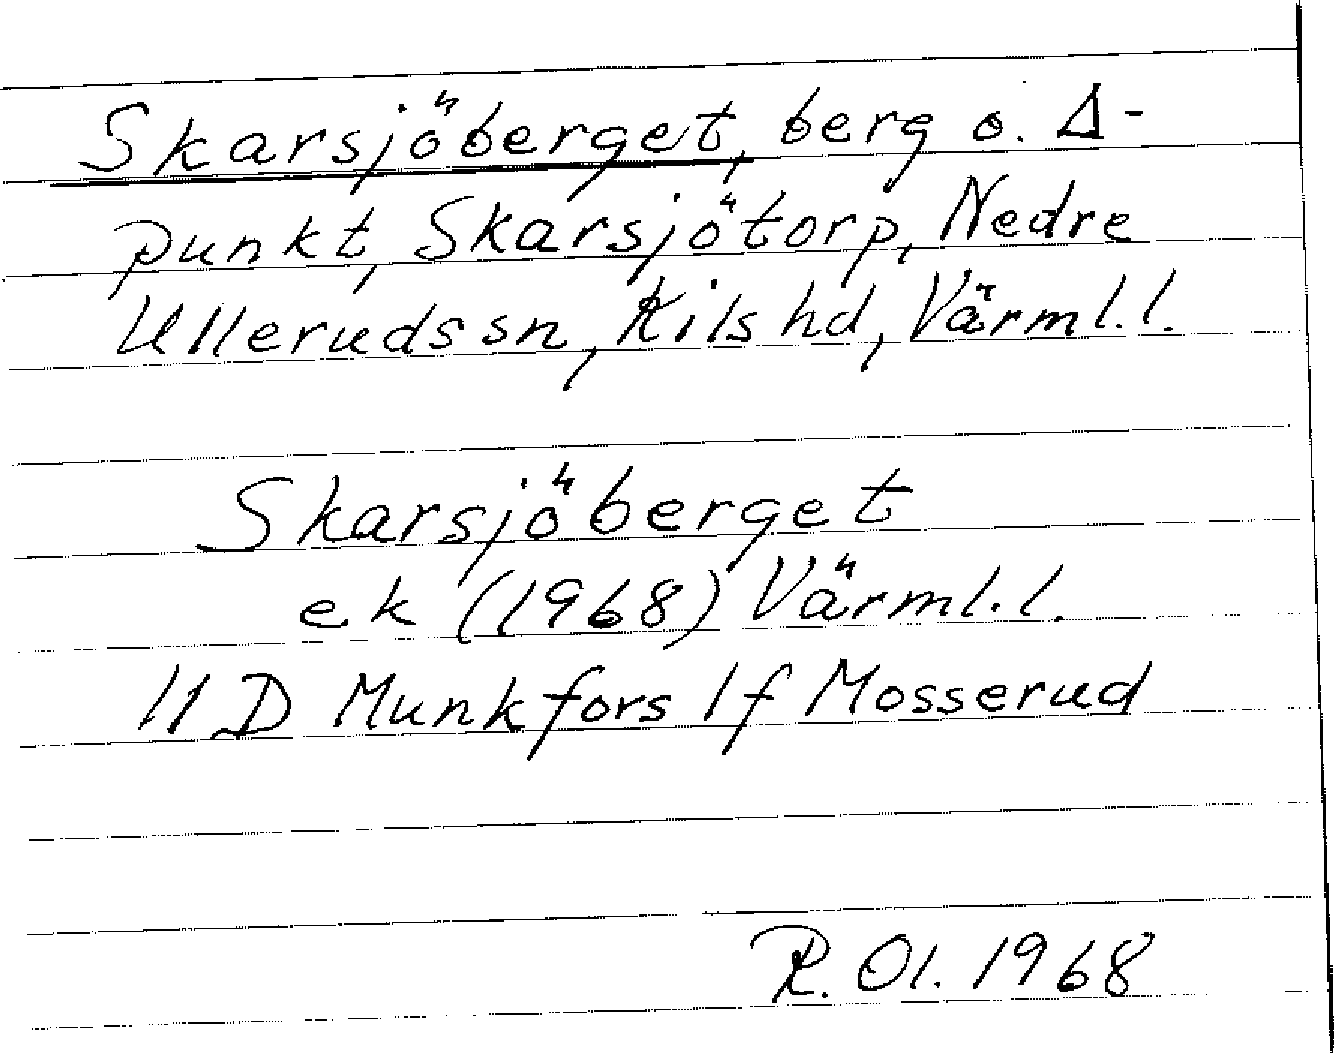 Skarsjöberget, berg o. Δ-
punkt, Skarsjötorp, Nedre
Ullerudssn, Kils hd, Värml.l.
Skarsjöberget
ek (1968) Värml.l.
11D Munkfors 1f Mosserud
R. Ol. 1968